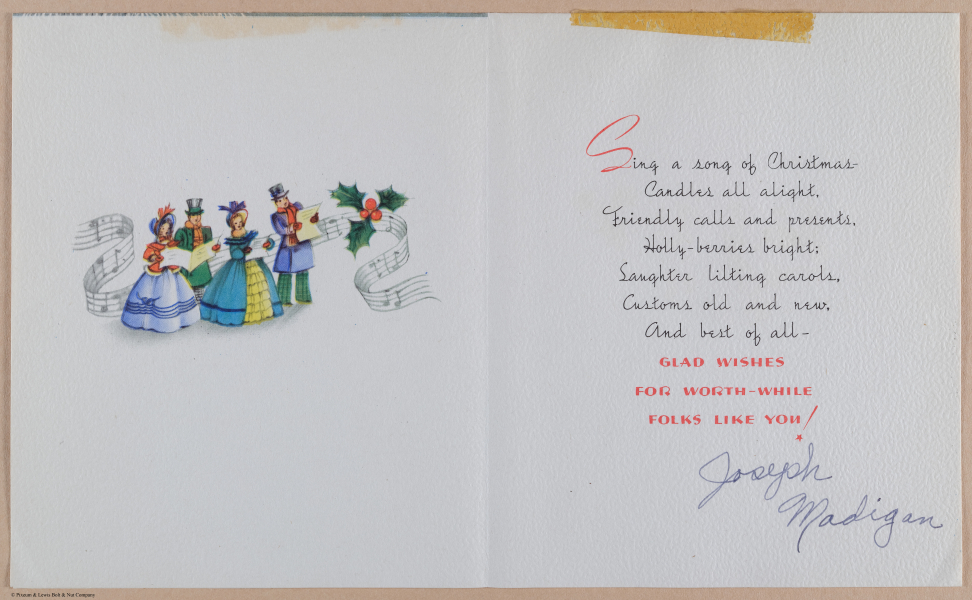 Sing a song of Christmas-
Candles all alight,
Friendly calls and presents,
Holly-berries bright;
Laughter lilting carols,
Customs old and new,
And best of all-
GLAD WISHES
FOR WORTH-WHILE
FOLKS LIKE YOU!
Joseph
Madigan
© Pixnum & Lewis Bob & Nat Company